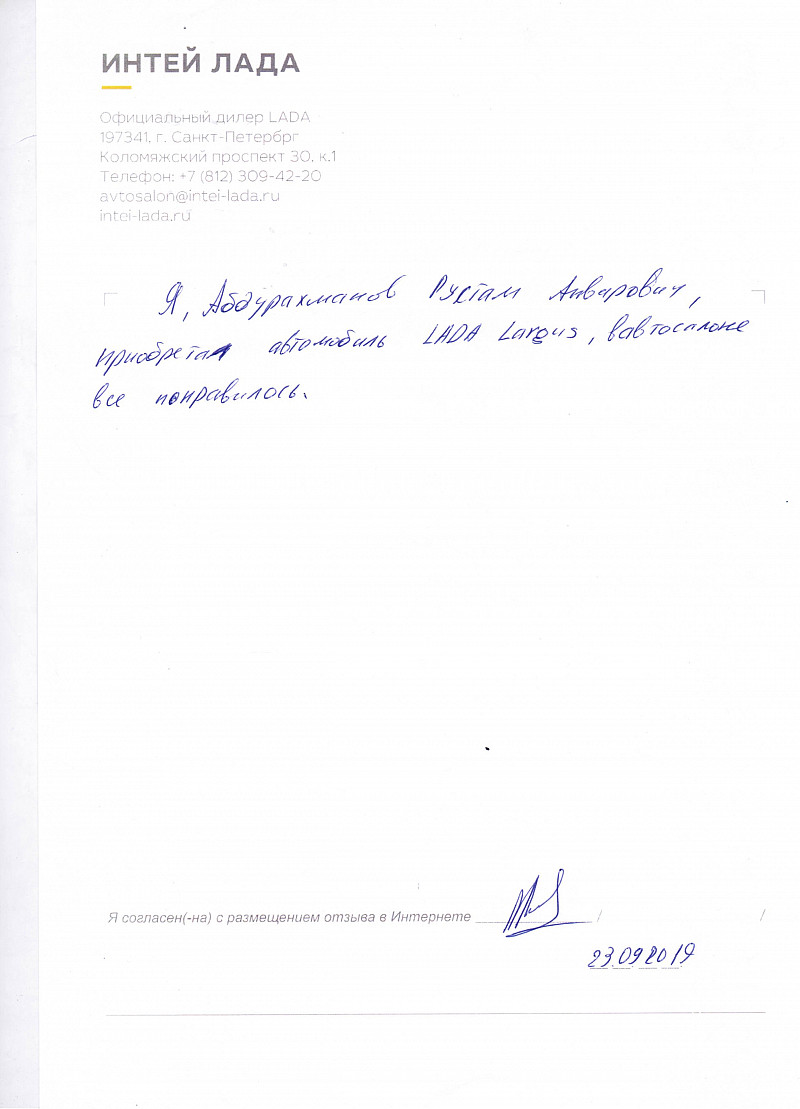 ИНТЕЙ ЛАДА
Официальный дилер LADA
197341, г. Санкт-Петербрг
Коломяжский проспект 30, к.1
Телефон: +7 (812) 309-42-20
avtosalon@intei-lada.ru
intei-lada.ru
Я, Абдурахманов Рустам Анварович,
приобретал автомобиль LADA Largus, в автосалоне
все понравилось.
Я согласен(-на) с размещением отзыва в Интернете / /
23.09.2019